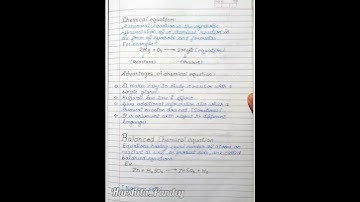 Chemical equation
A chemical equation is the symbolic
representation of a chemical reaction in
the form of symbols and formulas.
Ex example:
2Mg + O₂ → 2MgO (equation)
(Reactant) (Product)
Advantages of chemical equation:
It makes easy to study a reaction with a
single glance
less time & effort
Give additional information also which a
chemical reaction does not
It is universal with respect to different
languages.
Balanced Chemical equation
Equations having equal number of atoms on
reactant as well as product side are called
balanced equations.
Ex -
Zn + H₂SO₄ → ZnSO₄ + H₂
Harshita Pandey